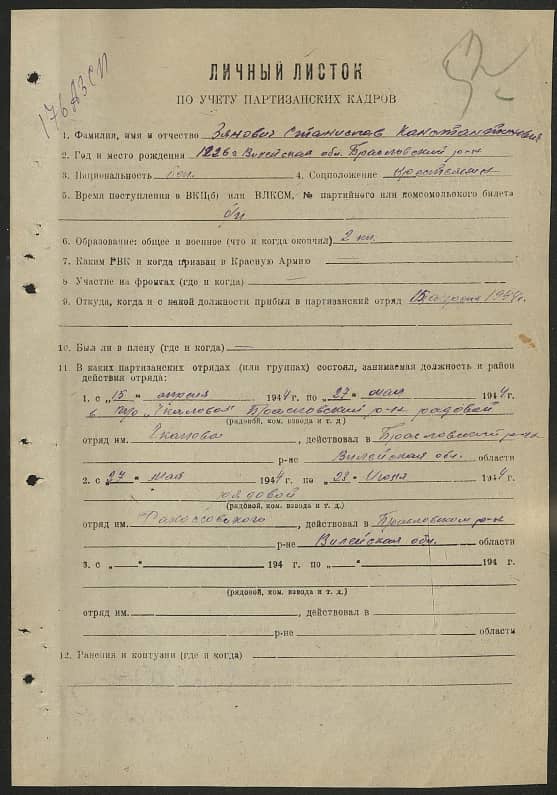 176 АЗСП
ЛИЧНЫЙ ЛИСТОК
ПО УЧЕТУ ПАРТИЗАНСКИХ КАДРОВ
1. Фамилия, имя и отчество Зянович Станислав Канстантинович
2. Год и место рождения 1926г Вилейская обл. Браславский р-н
3. Национальность бел. 4. Соцположение крестьянин
5. Время поступления в ВКП(б) или ВЛКСМ, № партийного или комсомольского билета
б/п
6. Образование: общее и военное (что и когда окончил) 2 кл.
7. Каким РВК и когда призван в Красную Армию
8 Участие на фронтах (где и когда) —
9. Откуда, когда и с какой должности прибыл в партизанский отряд 15 апреля 1944г.
10. Был ли в плену (где и когда) —
11 В каких партизанских отрядах (или группах) состоял, занимаемая должность и район
действия отряда:
1. с „15 “ апреля 1944 г. по „27“ мая 1944 г.
в „Чкалова“ Браславский р-н рядовой
(рядовой, ком. взвода и т. д.)
отряд им. Чкалова, действовал в Браславский р-н
р-не Вилейская обл. области
2. с „27“ мая 1944 г. по „28“ Июня 1944 г.
рядовой
(рядовой, ком. взвода и т. д.)
отряд им.Ракоссовского, действовал в Браславском р-н
р-не Вилейская обл. области
3. с „ “ 194 г. по „ “ 194 г.
(рядовой, ком. взвода и т. д.)
отряд им. , действовал в
р-не области
12. Ранения и контузии (где и когда)